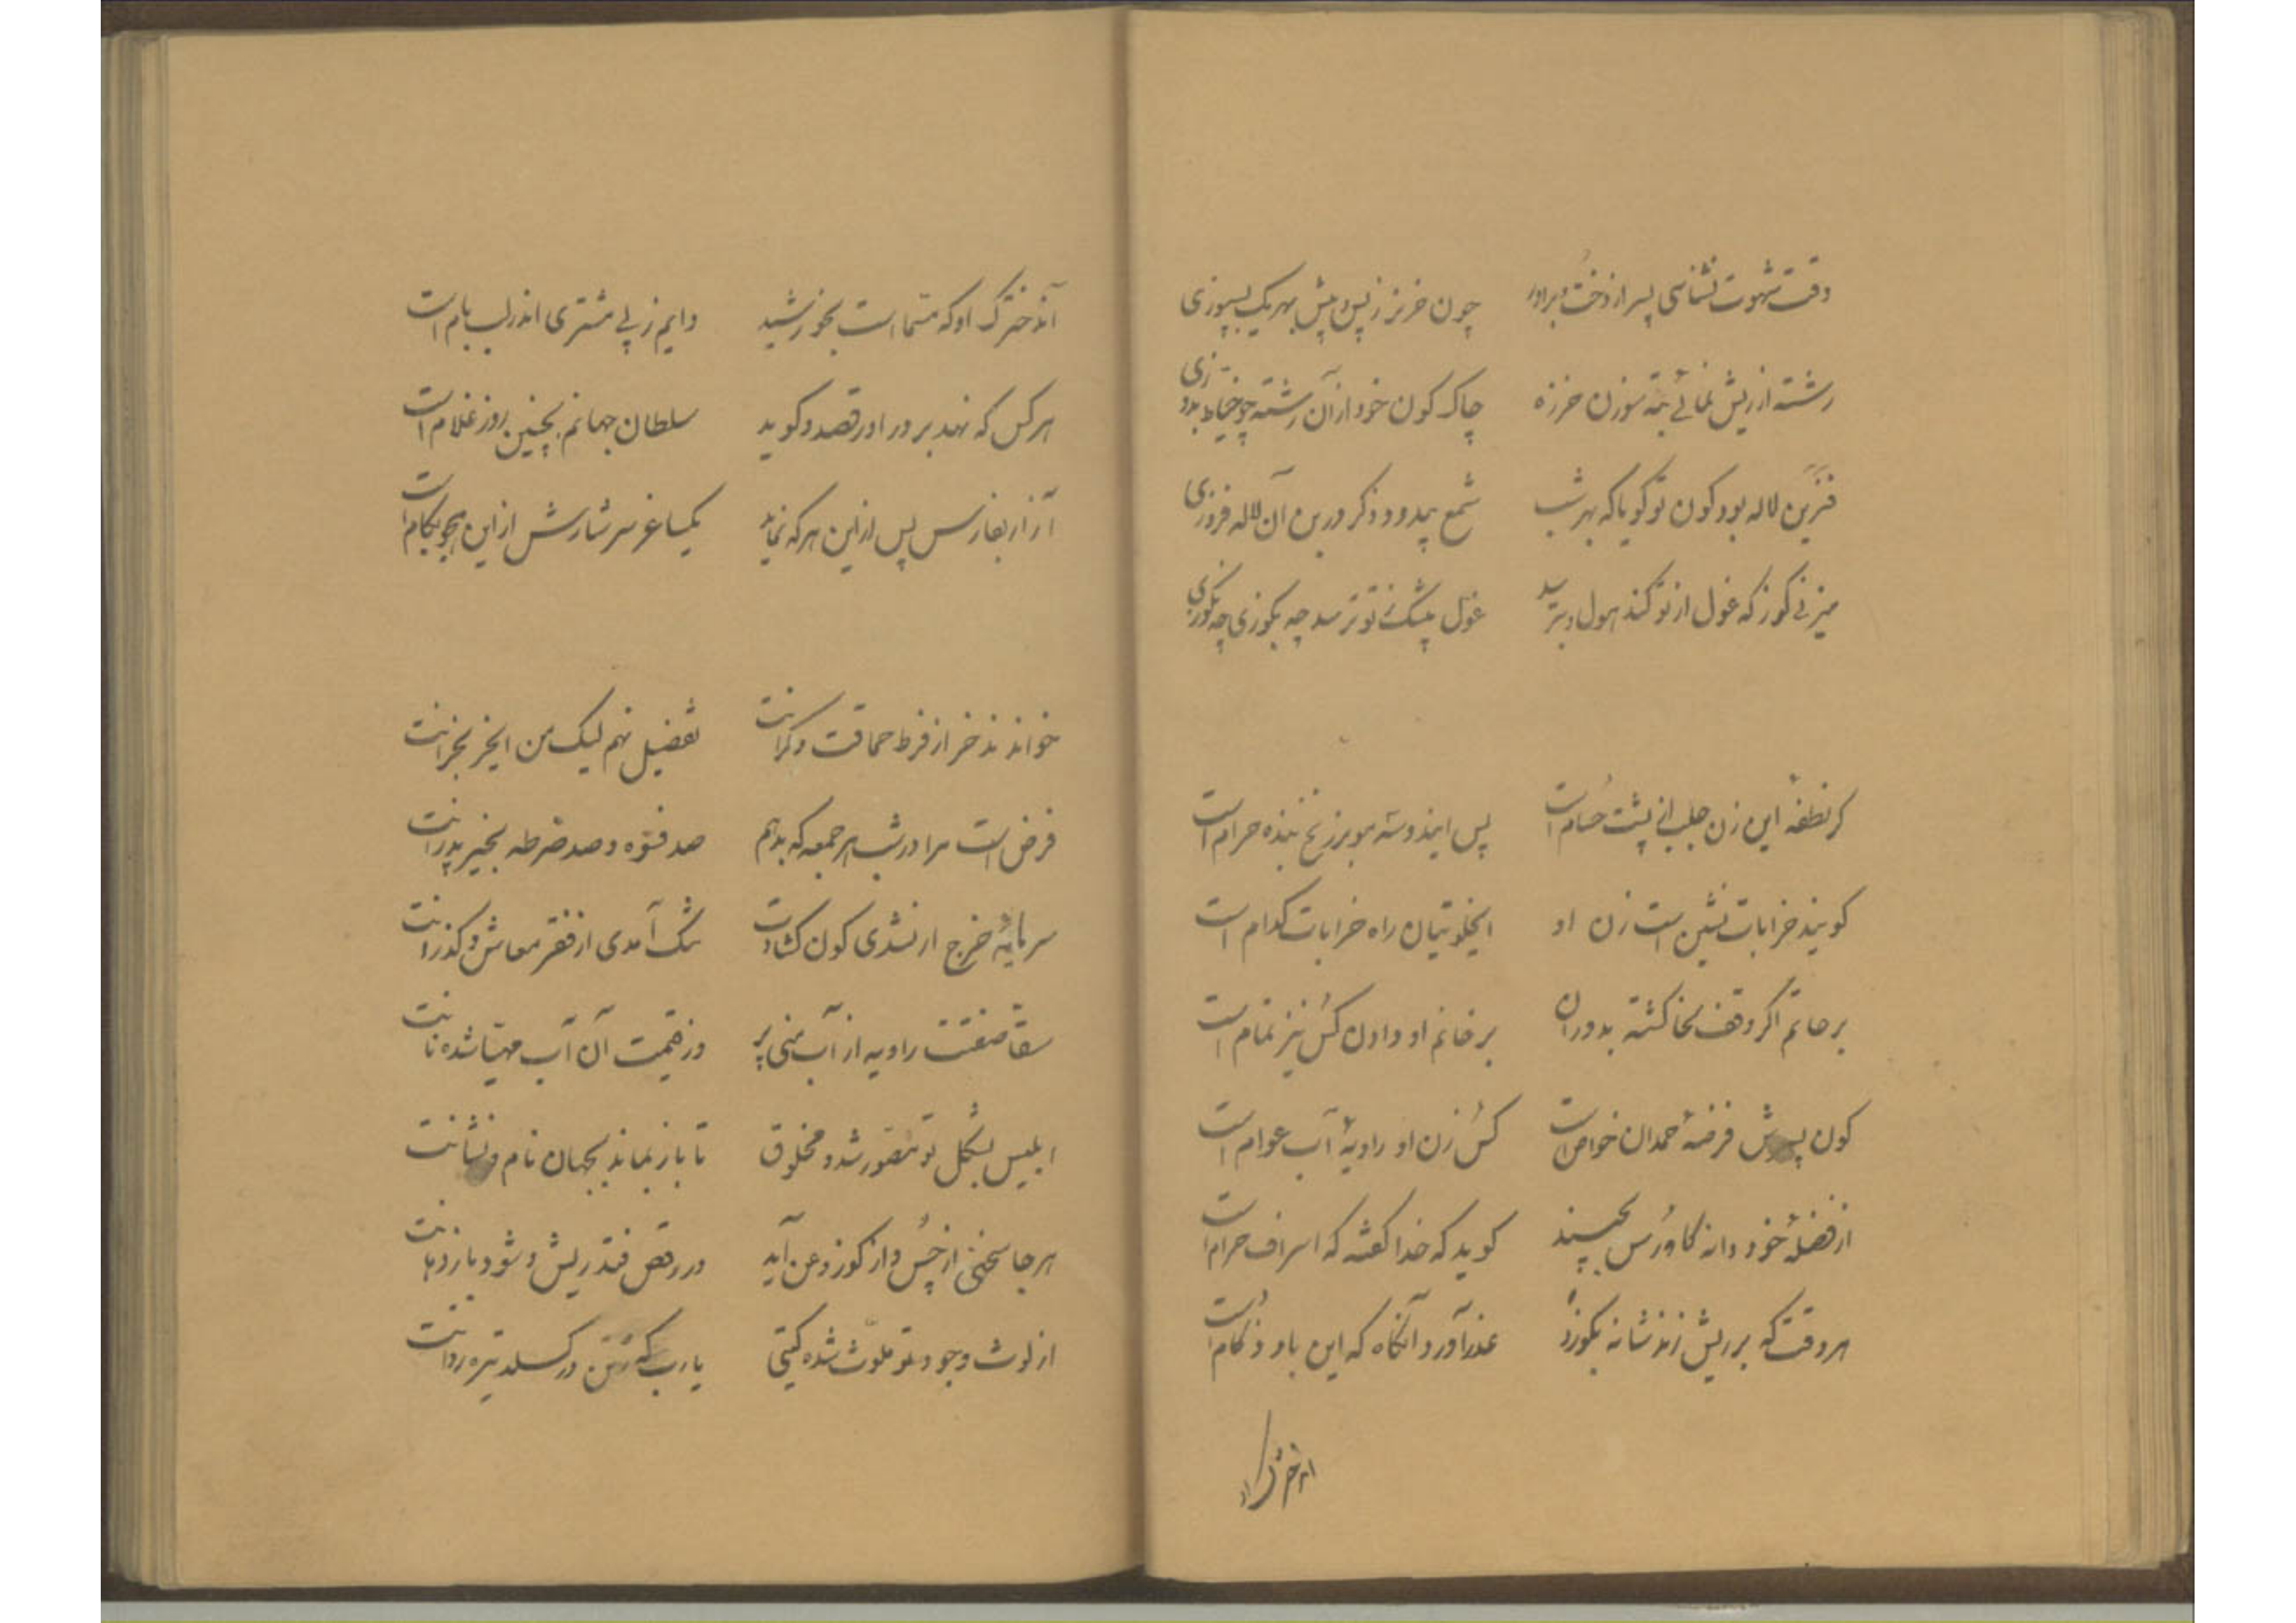 وقت شهوت نشناسی پسر از دخت و برادر چون خر نر ز پس و پیش بهر یک بسپوزی
رشته از ریش نمائی همه سوزن خرزه چاک کون خود از آن رشته چو خیاط بدوزی
قنّرین لاله بود کون تو گویا که بهر شب شمع پیه دو ذکر درین آن لاله فروزی
میزنی گوز که غول از تو کند هول و بترسد غول بیشک ز تو ترسد چه بگوزی چه نگوزی
گر نطفهٔ این زن جلب از پشت حسام است پس اینذوسته مو بر زنخ بنده حرام است
گویند خرابات نشین است زن او ایخلوتیان راه خرابات کدام است
بر حاتم اگر وقف سخا گشته بدوران بر خانم او دادن کس نیز تمام است
کون پسرش فرضهٔ حمدان خواص است کس زن او راویهٔ آب عوام است
از فضلهٔ خود دانه کاورس بچیند گوید که خدا گفته که اسراف حرام است
هر وقت که بر ریش زند شانه بگوزد عذر آورد آنگاه که این باد زکام است
آندخترک او که مسمّا است بخورشید دایم ز پی مشتری اندر لب بام است
هر کس که نهد بر در او رقصد و گوید سلطان جهانم بچنین روز غلام است
آزار بفارنس پس از این هر که نماید یکساغر سرشارش از این هجو بکام است
خوانند ند خر از فرط حماقت و کرانت تفضیل نهم لیک من ایخر بخرانت
فرض است مرا در شب هر جمعه که بدهم صد فسوه و صد ضرطه بخیر پدرانت
سرمایهٔ خرج ار نشدی کون گشادت تنگ آمدی از فقر معاش و گذرانت
سقا صفتت راویه از آب منی پر وز قیمت آن آب مهیا شده نانت
ابلیس بشکل تو مصوّر شد و مخلوق تا باز نماند بجهان نام و نشانت
هر جا سخنی از چس و از گوز و عن آید در رقص فتد ریش و شود باز دهانت
از لوث وجود تو ملوّث شده گیتی یارب که ز تن درگسلد تیره روانت